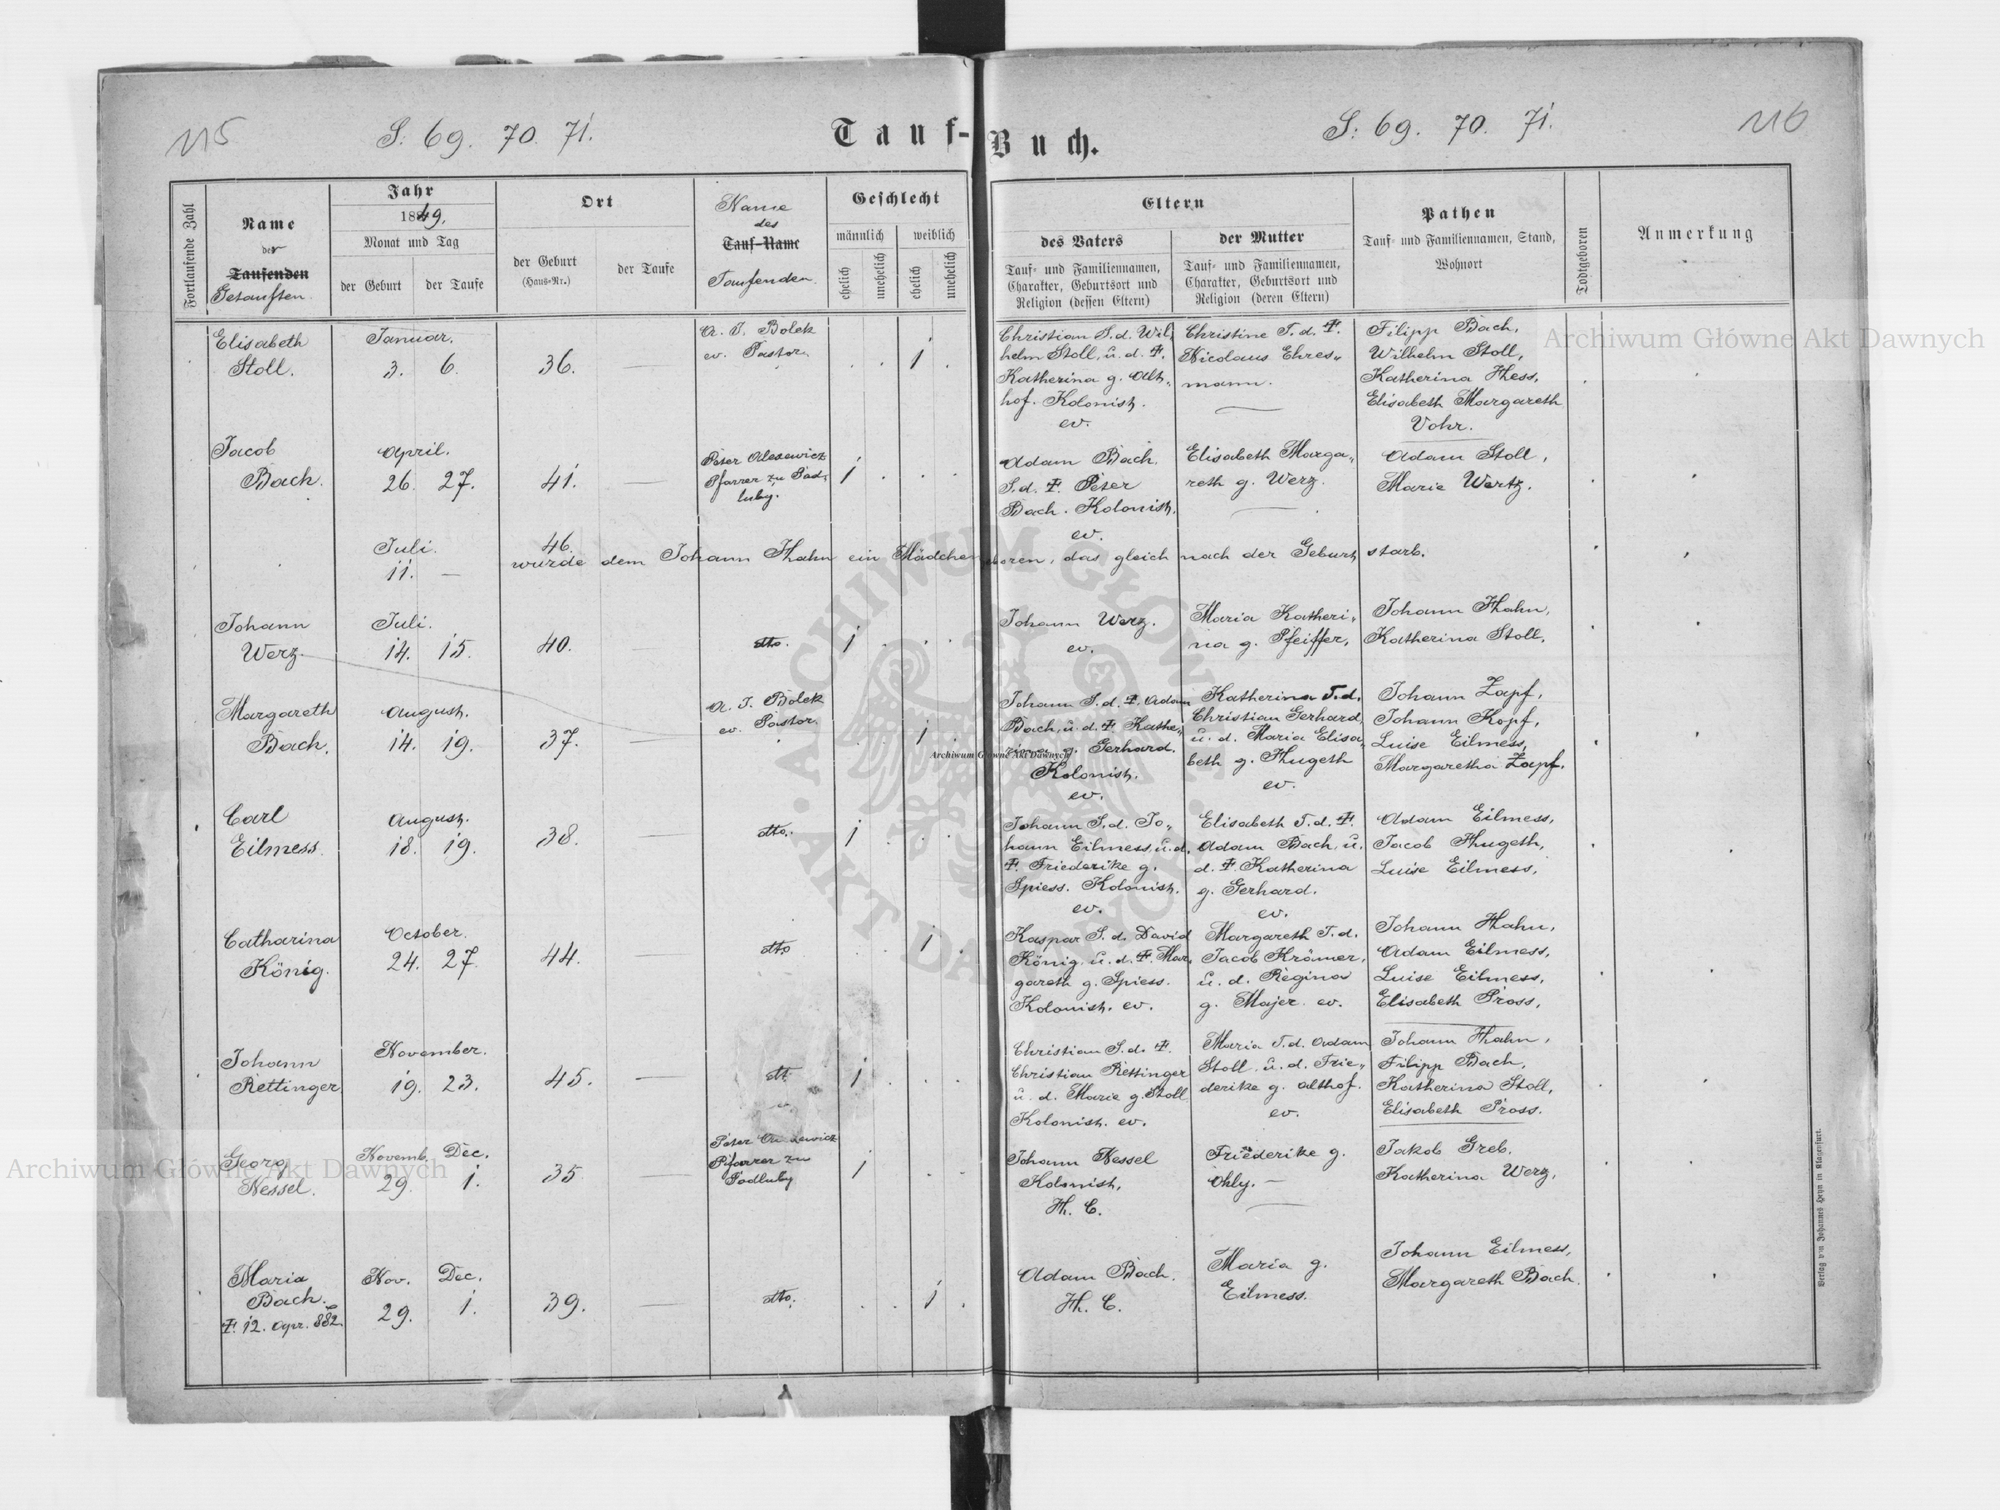 115
S. 69. 70. 71.
Tauf-Buch.
S. 69. 70. 71.
116
Fortlaufende Zahl
Name
der
Taufenden
Getauften.
Jahr
1849.
Monat und Tag
der Geburt
der Taufe
Ort
der Geburt
(Haus-Nr.)
der Taufe
Name
des
Tauf-Name
Taufenden.
Geschlecht
männlich
weiblich
ehelich
unehelich
ehelich
unehelich
Eltern
des Vaters
Tauf- und Familiennamen,
Charakter, Geburtsort und
Religion (dessen Eltern)
der Mutter
Tauf- und Familiennamen,
Charakter, Geburtsort und
Religion (deren Eltern)
Pathen
Tauf- und Familiennamen, Stand,
Wohnort
Todtgeboren
Anmerkung
Elisabeth
Stoll.
Januar.
3. 6.
36.
A. J. Bolek
ev. Pastor.
1
Christian S. d. Wil,
helm Stoll, u. d. †.
Katherina g. Alt,,
hof. Kolonist.
ev.
Christine T. d. †.
Nicolaus Ehres,,
mann.
Filipp Bach,
Wilhelm Stoll,
Katherina Hess,
Elisabeth Margareth
Vohr.
Jacob
Bach.
April.
26. 27.
41.
Peter
Pfarrer zu Pod,
luby.
1
Adam Bach.
S. d. †. Peter
Bach. Kolonist.
ev.
Elisabeth Marga,,
reth g. Werz.
Adam Stoll,
Marie Wertz.
Juli.
11. —
46.
wurde dem Johann Hahn ein Mädchen geboren, das gleich nach der Geburt starb.
Johann
Werz.
Juli.
14. 15.
40.
dto.
1
Johann Werz.
ev.
Maria Katheri,
na g. Pfeiffer,
Johann Hahn,
Katherina Stoll,
Margareth
Bach.
August.
14. 19.
37.
A. J. Bolek
ev. Pastor.
1
Johann S. d. †. Adam
Bach, u. d. †. Kathe,,
rina g. Gerhard.
Kolonist.
ev.
Katherina T. d.
Christian Gerhard,
u. d. Maria Elisa,
beth g. Hugeth
ev.
Johann Zapf,
Johann Kopf,
Luise Eilmess,
Margaretha Zapf.
Carl
Eilmess.
August.
18. 19.
38.
dto.
1
Johann S. d. Jo,,
hann Eilmess, u. d.
†. Friederike g.
Spiess. Kolonist.
ev.
Elisabeth T. d. †.
Adam Bach, u.
d. †. Katherina
g. Gerhard.
ev.
Adam Eilmess,
Jacob Hugeth,
Luise Eilmess,
Catharina
König.
October.
24. 27.
44.
dto
1
Kaspar S. d. David
König, u. d. †. Mar,
gareth g. Spiess.
Kolonist. ev.
Margareth T. d.
Jacob Krämer,
u. d. Regina
g. Majer ev.
Johann Hahn,
Adam Eilmess,
Luise Eilmess,
Elisabeth Pross,
Johann
Rettinger
November.
19. 23.
45.
dt
1
Christian S. d. †.
Christian Rettinger
u. d. Marie g. Stoll
Kolonist. ev.
Maria T. d. Adam
Stoll, u. d. Frie,,
derike g. Althof.
ev.
Johann Hahn,
Filipp Bach,
Katherina Stoll,
Elisabeth Pross.
Georg
Nessel.
Novemb. Dec.
29. 1.
35
Peter
Pfarrer zu
Podluby
1
Johann Nessel
Kolonist,
H. C.
Friederike g.
Ohly. —
Jakob Greb,
Katherina Werz,
Maria
Bach.
†. 12. Apr. 882
Nov. Dec.
29. 1.
39.
dto.
1
Adam Bach.
H. C.
Maria g.
Eilmess.
Johann Eilmess,
Margareth Bach.
Verlag von Johannes Heyn in Klagenfurt.
Archiwum Główne Akt Dawnych
Archiwum Główne Akt Dawnych
Archiwum Główne Akt Dawnych
ARCHIWUM GŁÓWNE · AKT DAWNYCH ·